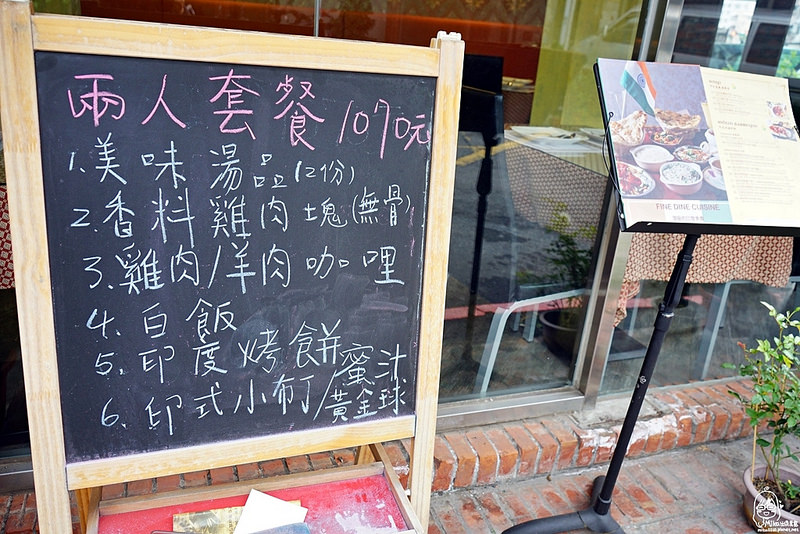 兩人套餐1070元
1.美味湯品(2份)
2.香料雞肉塊(無骨)
3.雞肉/羊肉咖哩
4.白飯
5.印度烤餅
6.印式小布丁/蜜汁黃金球
FINE DINE CUISINE